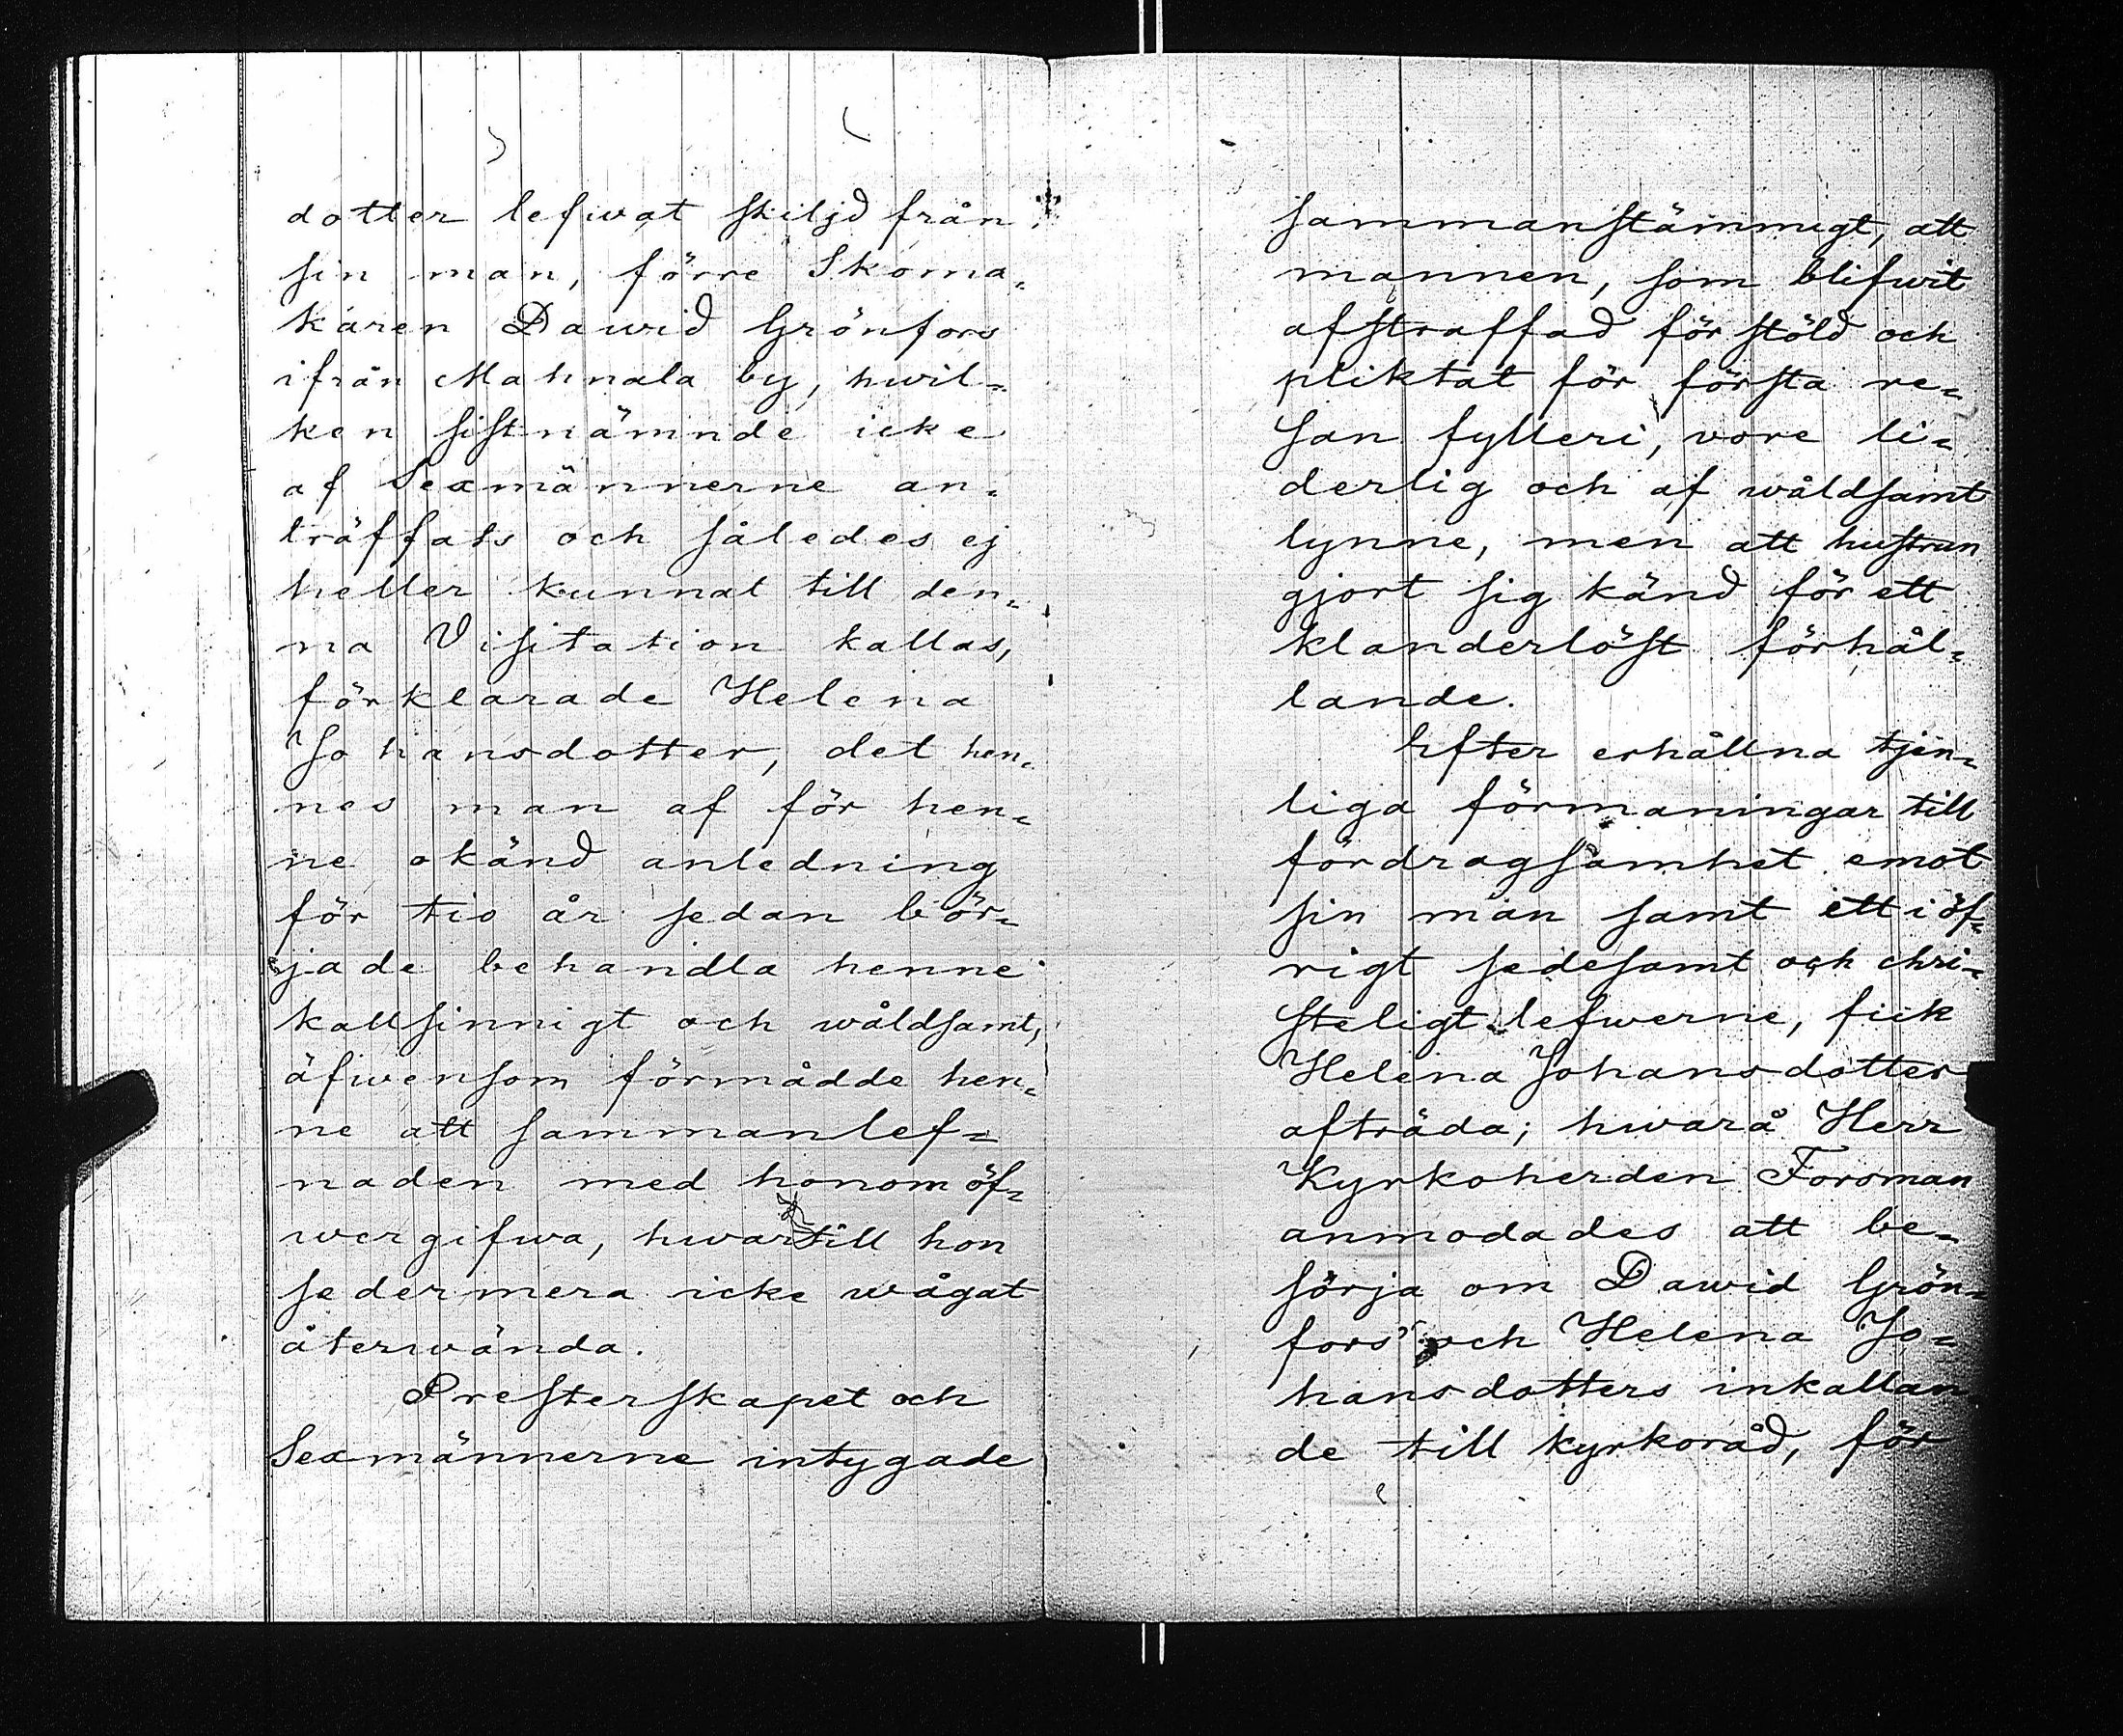 dotter lefwat skiljd från
sin man, förre Skoma=
karen Dawid Grönfors
ifrån Mahnala by, hwil=
ken sistnämnde icke
af Sexmännerne an=
träffats och således ej
heller kunnat till den=
na Visitation kallas,
förklarade Helena
Johansdotter, det hen=
nes man af för hen=
ne okänd anledning
för tio år sedan bör=
jade behandla henne
kallsinnigt och wåldsamt,
äfwensom förmådde hen=
ne att sammanlef=
naden med honom öf=
wergifwa, hwartill hon
sedermera icke wågat
återwända.
Presterskapet och
Sexmännerne intygade
sammanstämmigt, att
mannen, som blifwit
afstraffad för stöld och
pliktat för första re=
san fylleri, vore li=
derlig och af wåldsamt
lynne, men att hustrun
gjort sig känd för ett
klanderlöst förhål=
lande.
Efter erhållna tjen=
liga förmaningar till
fördragsamhet emot
sin man samt ett i öf=
rigt sedesamt och chri=
steligt lefwerne, fick
Helena Johansdotter
afträda; hwarå Herr
Kyrkoherden Forsman
anmodades att be=
sörja om Dawid Grön=
fors' och Helena Jo=
hansdotters inkallan=
de till kyrkoråd, för